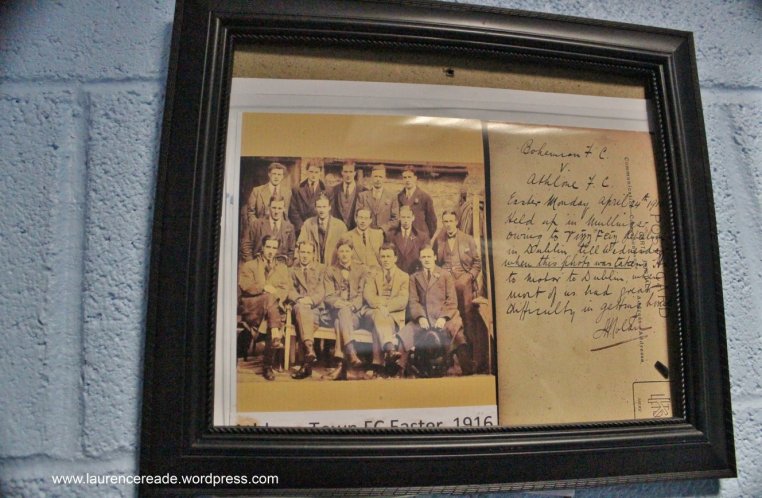 Bohemian F C.
V.
Athlone F. C.
Easter Monday April 24th
Held up in Mullingar
owing to Sinn Fein Rebellion
in Dublin till Wednesday
when this photo was taken.
to motor to Dublin where
most of us had great
difficulty in getting home
Town FC Easter 1916
www.laurencereade.wordpress.com